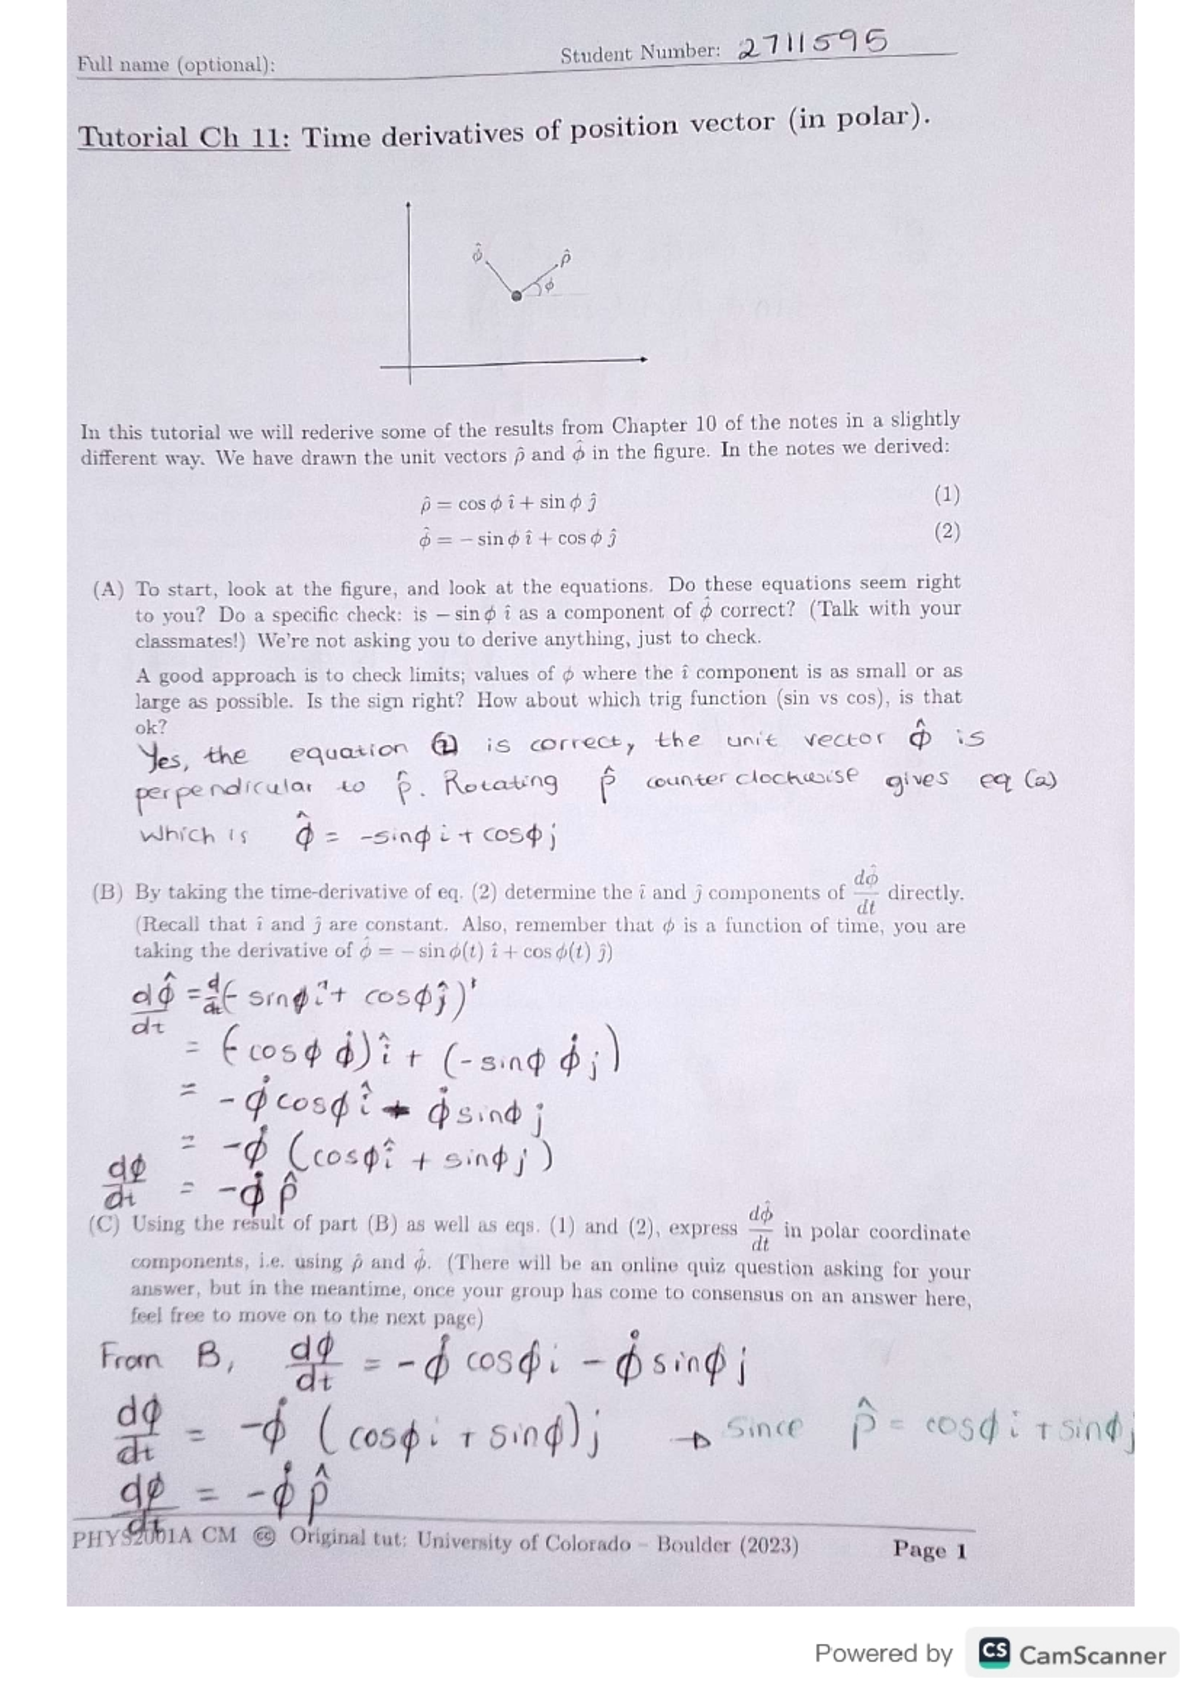 Full name (optional):
Student Number: 2711595
Tutorial Ch 11: Time derivatives of position vector (in polar).
ϕ̂ ρ̂
ϕ
In this tutorial we will rederive some of the results from Chapter 10 of the notes in a slightly
different way. We have drawn the unit vectors ρ̂ and ϕ̂ in the figure. In the notes we derived:
ρ̂ = cos ϕ î + sin ϕ ĵ (1)
ϕ̂ = − sin ϕ î + cos ϕ ĵ (2)
(A) To start, look at the figure, and look at the equations. Do these equations seem right
to you? Do a specific check: is − sin ϕ î as a component of ϕ̂ correct? (Talk with your
classmates!) We're not asking you to derive anything, just to check.
A good approach is to check limits; values of ϕ where the î component is as small or as
large as possible. Is the sign right? How about which trig function (sin vs cos), is that
ok?
Yes, the equation ② is correct, the unit vector ϕ̂ is
perpendicular to ρ̂. Rotating ρ̂ counter clockwise gives eq (2)
which is ϕ̂ = -sinϕ i + cosϕ j
(B) By taking the time-derivative of eq. (2) determine the î and ĵ components of dϕ̂/dt directly.
(Recall that î and ĵ are constant. Also, remember that ϕ is a function of time, you are
taking the derivative of ϕ̂ = − sin ϕ(t) î + cos ϕ(t) ĵ)
dϕ̂/dt = d/dt (- sinϕ î + cosϕ ĵ)'
= (-cosϕ ϕ̇) î + (-sinϕ ϕ̇ j)
= -ϕ̇ cosϕ î - ϕ̇ sinϕ j
= -ϕ̇ (cosϕ î + sinϕ j)
dϕ/dt = -ϕ̇ ρ̂
(C) Using the result of part (B) as well as eqs. (1) and (2), express dϕ̂/dt in polar coordinate
components, i.e. using ρ̂ and ϕ̂. (There will be an online quiz question asking for your
answer, but in the meantime, once your group has come to consensus on an answer here,
feel free to move on to the next page)
From B, dϕ/dt = -ϕ̇ cosϕ i - ϕ̇ sinϕ j
dϕ/dt = -ϕ̇ (cosϕ i + sinϕ) j → since ρ̂ = cosϕ i + sinϕ j
dϕ/dt = -ϕ̇ ρ̂
PHYS2001A CM 🄯 Original tut: University of Colorado – Boulder (2023) Page 1
Powered by CS CamScanner